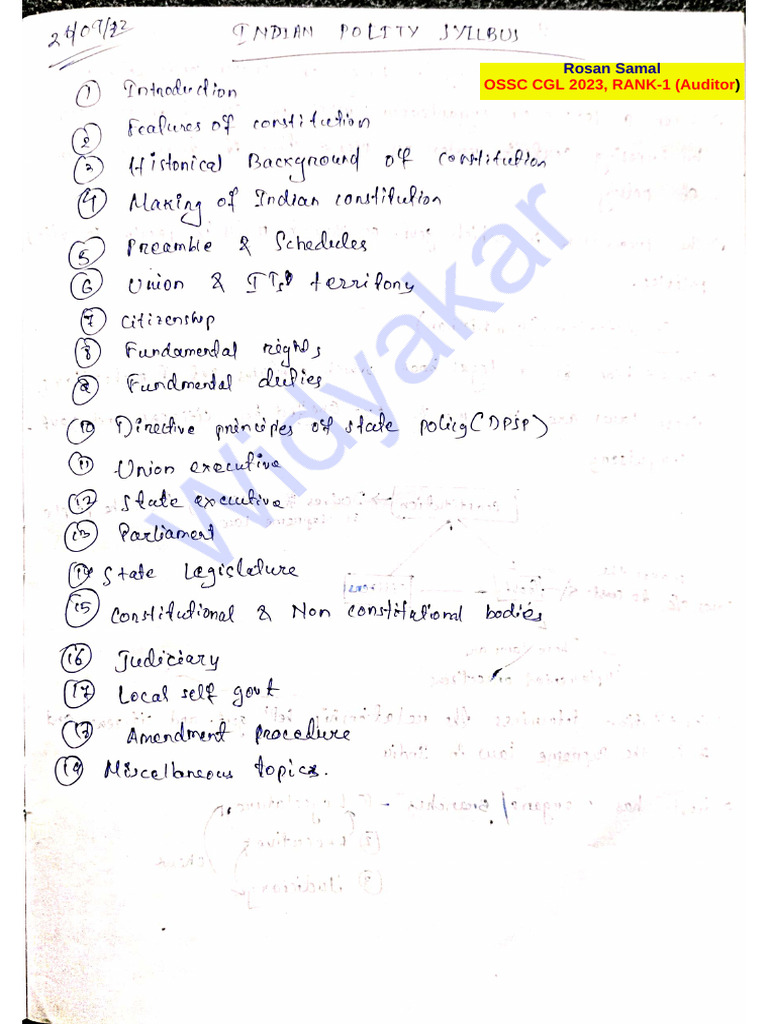 21/09/22
INDIAN POLITY SYLLBUS
Rosan Samal
OSSC CGL 2023, RANK-1 (Auditor)
① Introduction
② Features of constitution
③ Historical Background of constitution
④ Making of Indian constitution
⑤ Preamble & Schedules
⑥ Union & ITs territory
⑦ Citizenship
⑧ Fundamental rights
⑨ Fundmental duties
⑩ Directive principles of state policy (DPSP)
⑪ Union executive
⑫ State executive
⑬ Parliament
⑭ State Legislature
⑮ Constitutional & Non constitutional bodies
⑯ Judiciary
⑰ Local self govt
⑱ Amendment procedure
⑲ Miscellaneous topics.
Widyakar